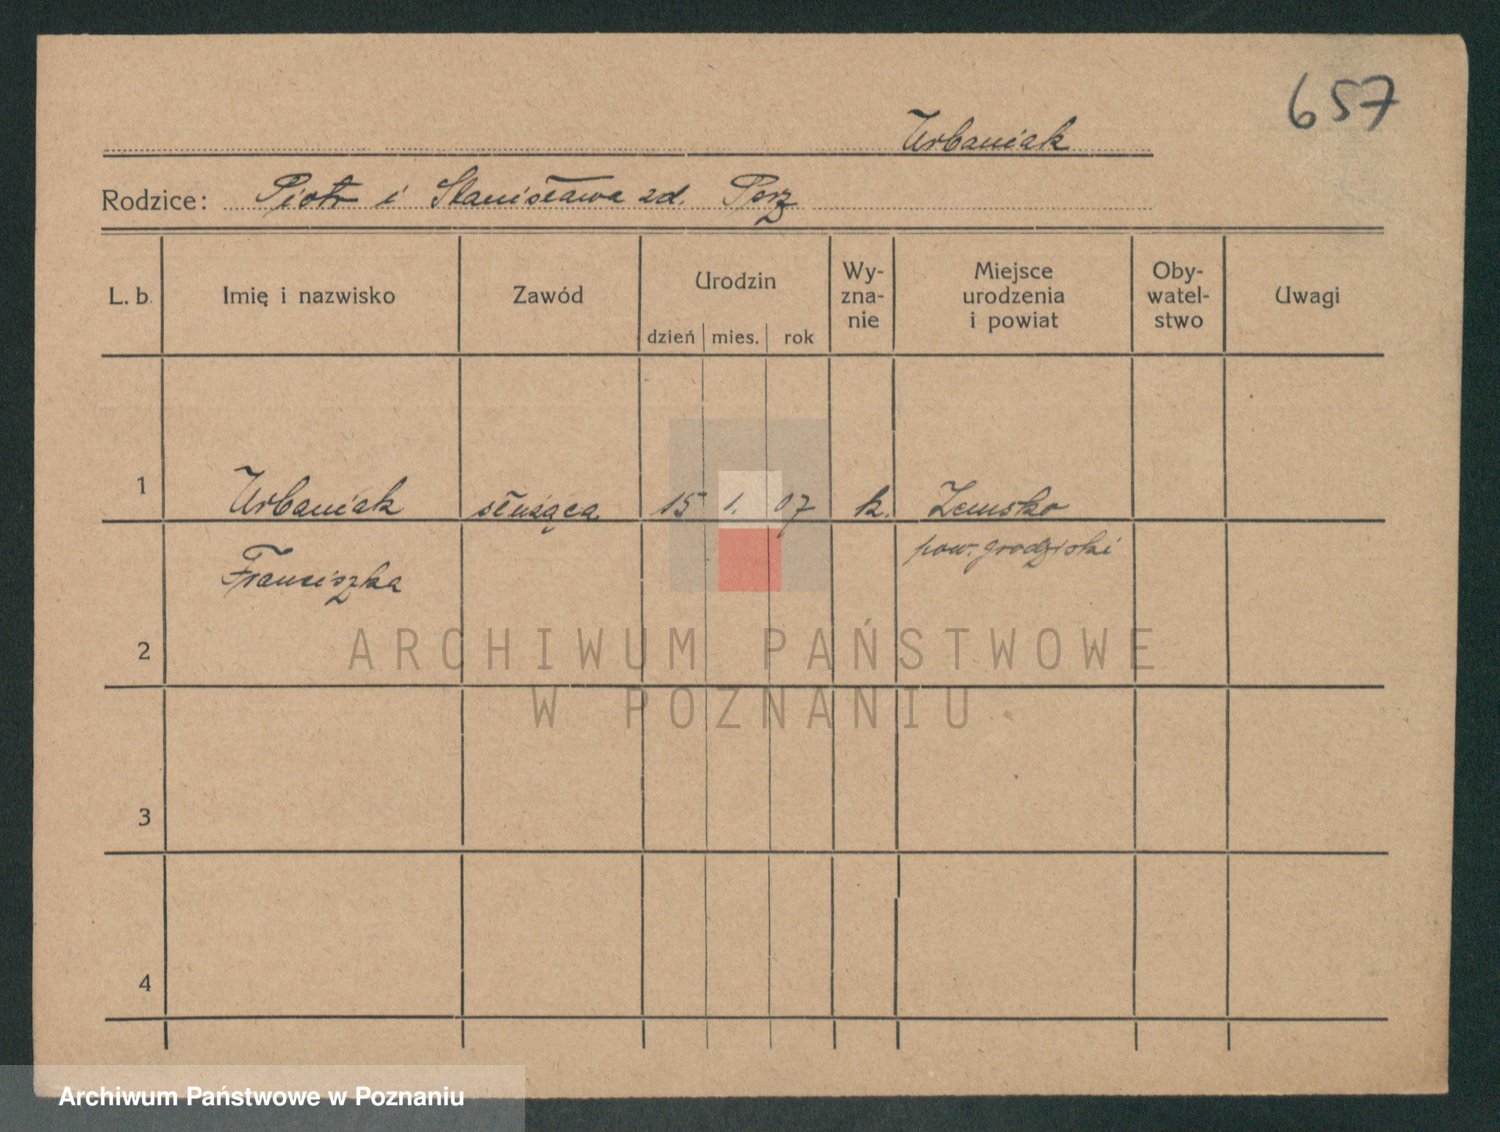 657
Urbaniak
Rodzice: Piotr i Stanisława zd. Porz
L. b. Imię i nazwisko Zawód Urodzin Wy- Miejsce Oby- Uwagi
zna- urodzenia watel-
nie i powiat stwo
dzień mies. rok
1 Urbaniak służąca 15 1. 07 k. Zemsko
Franciszka pow. grodziski
2
3
4
ARCHIWUM PAŃSTWOWE
W POZNANIU
Archiwum Państwowe w Poznaniu